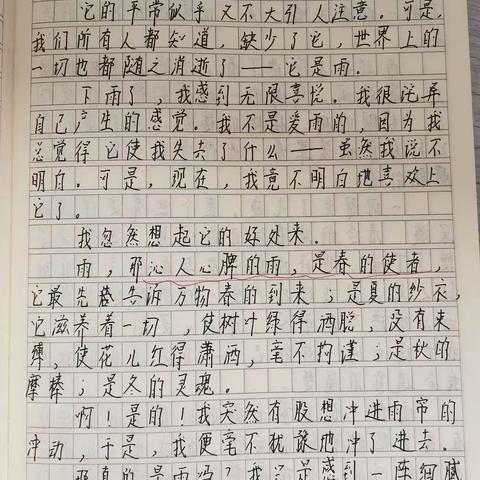 它的平常似乎又不大引人注意。可是,
我们所有人都知道,缺少了它,世界上的
一切也都随之消逝了——它是雨。
下雨了,我感到无限喜悦。我很诧异
自己产生的感觉。我不是爱雨的,因为我
总觉得它使我失去了什么——虽然我说不
明白。可是,现在,我竟不明白地喜欢上
它了。
我忽然想起它的好处来.
雨,那沁人心脾的雨,是春的使者,
它最先告诉万物春的到来;是夏的纱衣,
它滋养着一切,使树叶绿得洒脱,没有束
缚,使花儿红得潇洒,毫不拘谨;是秋的
摩棒;是冬的灵魂。
啊!是的!我突然有股想冲进雨帘的
冲动,于是,我便毫不犹豫地冲了进去.
那真的是雨吗?我只是感到一阵细腻